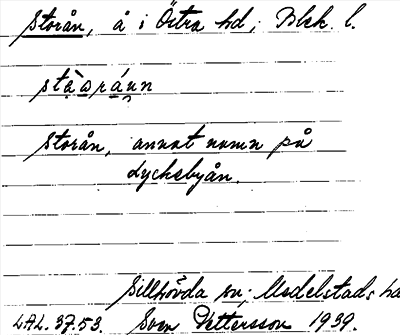 Storån, å i Östra hd; Blek. l.
Storån, annat namn på
Lyckebyån.
Sillhövda sn; Medelstads hd
LAL. 37.53. Sven Pettersson 1939.